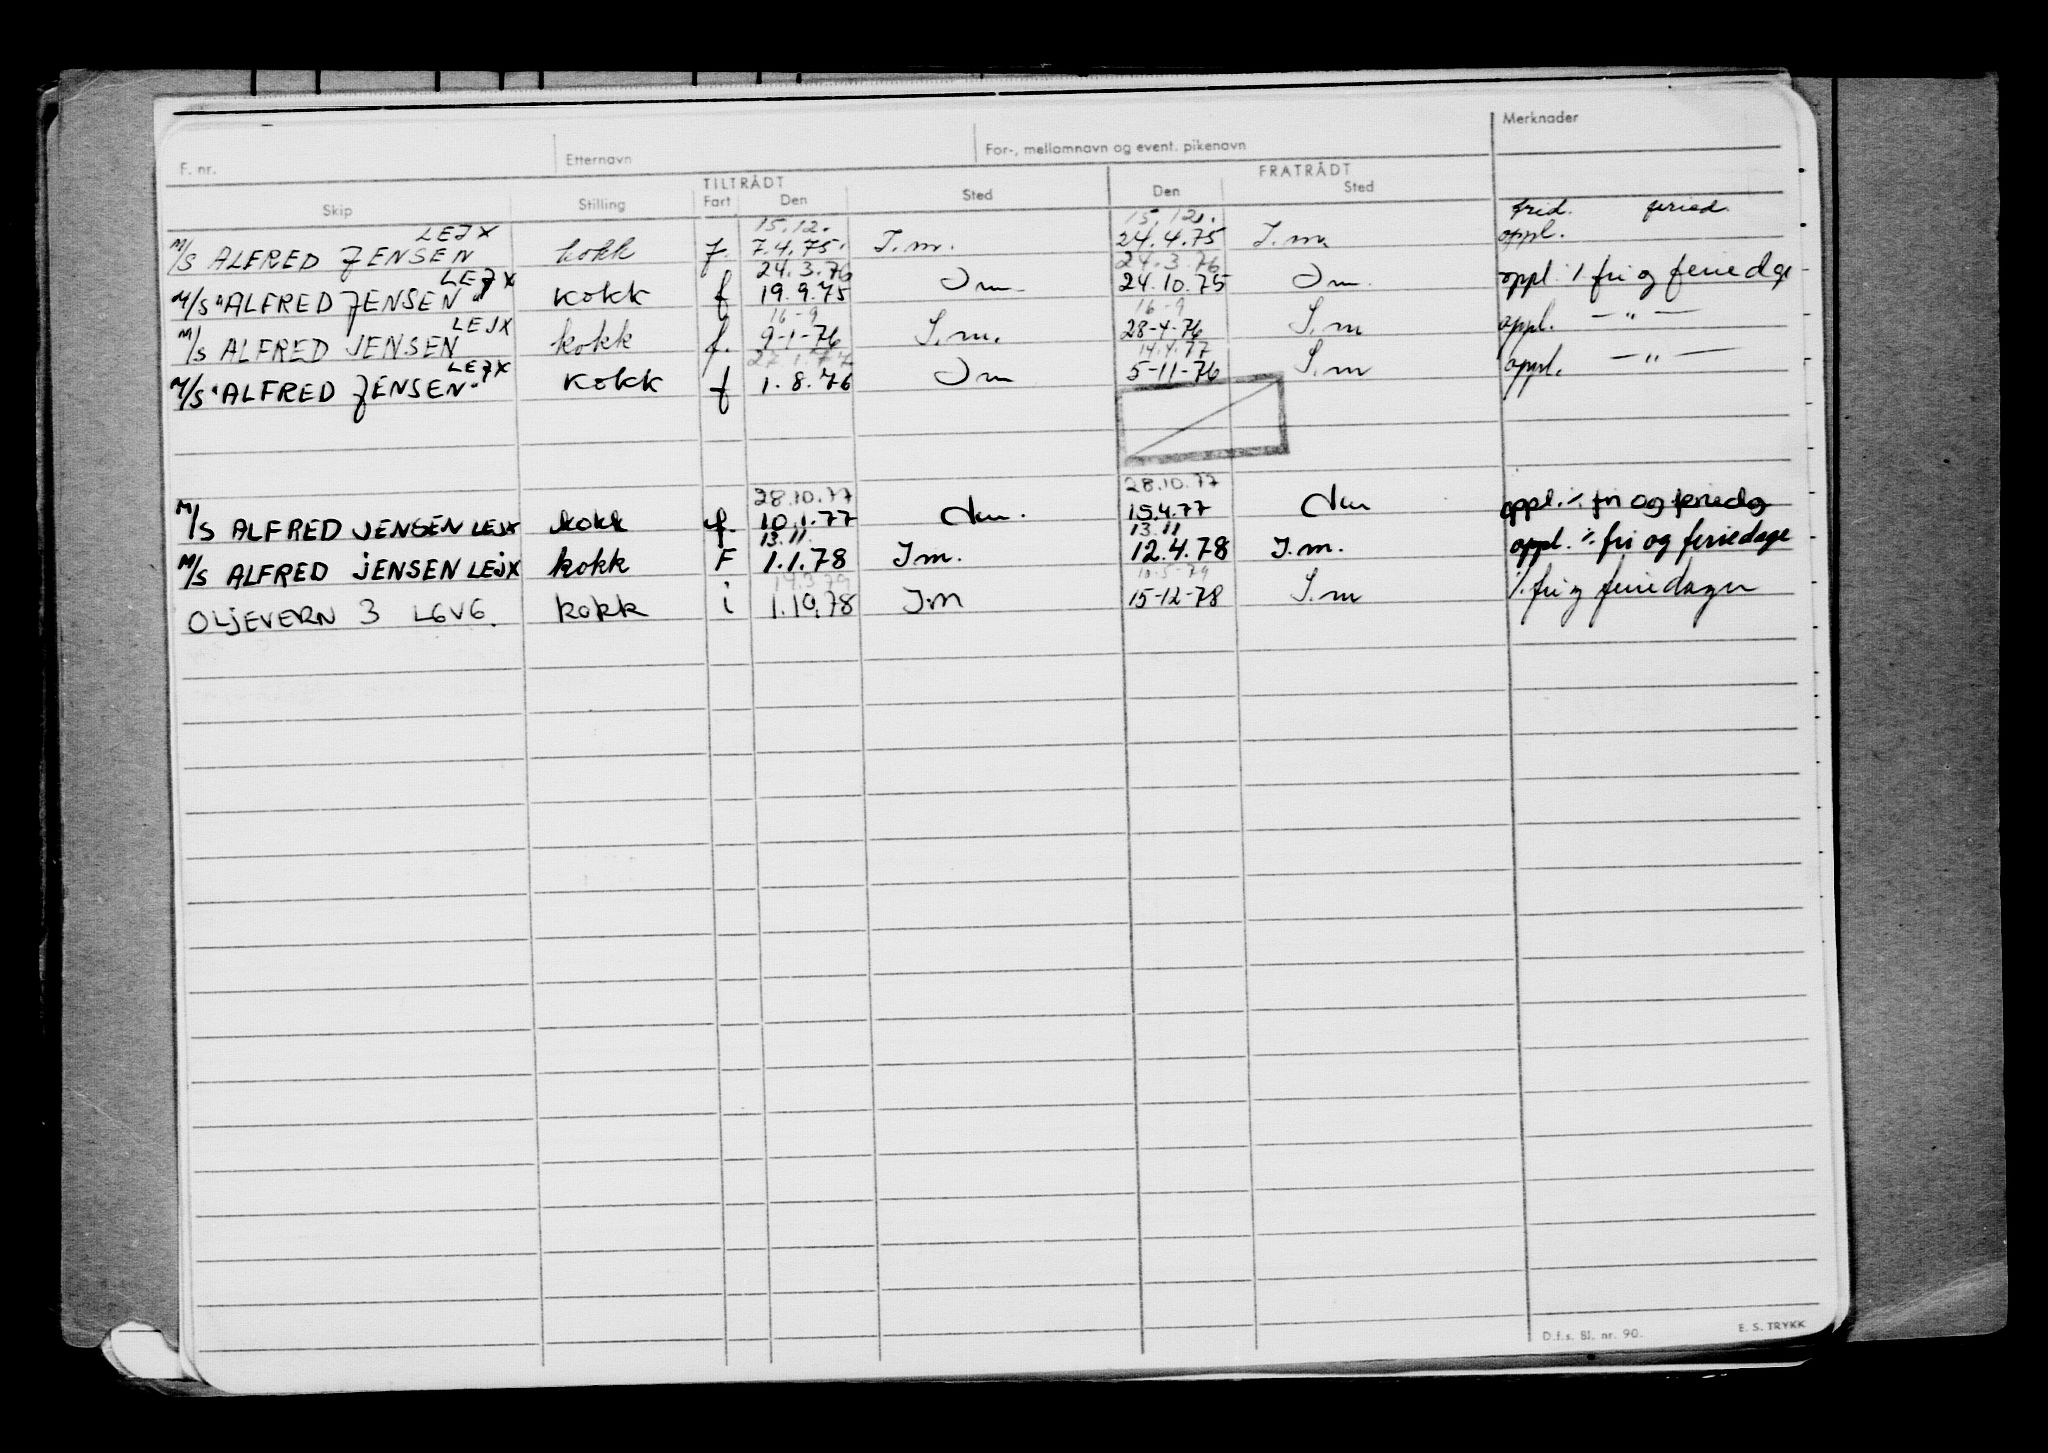 F. nr. Etternavn For-, mellomnavn og event. pikenavn Merknader
TILTRÅDT FRATRÅDT
Skip Stilling Fart Den Sted Den Sted
LEJX 15.12. 15.12. frid. feried.
M/S ALFRED JENSEN kokk f. 7.4.75. I.m. 24.4.75 I.m. oppl.
LEJX 24.3.76 24.3.76
M/S "ALFRED JENSEN" kokk f 19.9.75 Im 24.10.75 Im. oppl. % fri og feriedge
LEJX 16-9 16-9
M/S ALFRED JENSEN kokk f. 9-1-76 I.m. 28-4-76 I.m oppl. — " —
LEJX 27.1.77 14.4.77
M/S "ALFRED JENSEN" kokk f 1.8.76 Im 5-11-76 I.m oppl. — " —
28.10.77 28.10.77
M/S ALFRED JENSEN LEJX kokk f. 10.1.77 15.4.77 oppl. % fri og feriedg
13.11. 13.11
M/S ALFRED JENSEN LEJX kokk F 1.1.78 I.m. 12.4.78 I.m. oppl. % fri og feriedage
14.3.79 10-5-79
OLJEVERN 3 LGVG. kokk i 1.10.78 I.M 15-12-78 I.m % fri og feriedager
D.f.s. Bl. nr. 90. E. S. TRYKK